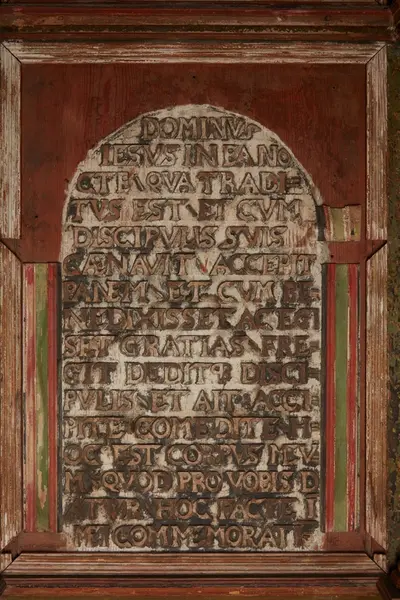 DOMINVS
IESVS IN EA NO
CTE QVA TRADI=
TVS EST ET CVM
DISCIPVLIS SVIS
CÆNAVIT ACCEPIT
PANEM ET CVM BE
NEDIXISSET AC ES
SET GRATIAS FRE
GIT DEDITQ DISCI
PVLIS ET AIT ACCI
PITE COMEDITE H
OC EST CORPVS MEV
M QVOD PRO VOBIS D
ATVR HOC FACTE I
MEI COMMEMORATI